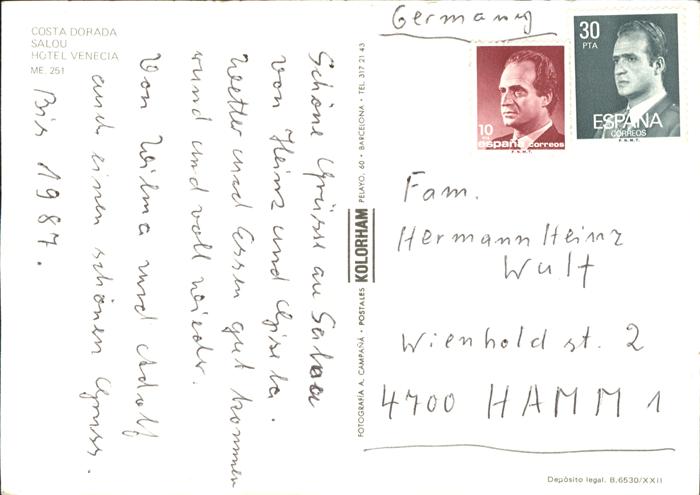 COSTA DORADA
SALOU
HOTEL VENECIA
ME. 251
Schöne Grüsse au Salou
von Heinz und Gisela.
Wetter und Essen gut kommen
rund und voll wieder.
Von Wilma und Adolf
auch einen schönen Gruss.
Bis 1987.
FOTOGRAFIA A. CAMPAÑÁ • POSTALES KOLORHAM PELAYO, 60 • BARCELONA • TEL. 317 21 43
Germany
10 PTA
españa correos
F.N.M.T.
30
PTA
ESPAÑA
CORREOS
F.N.M.T.
Fam.
Hermann Heinz
Wulf
Wienhold st. 2
4700 HAMM 1
Depósito legal. B.6530/XXII